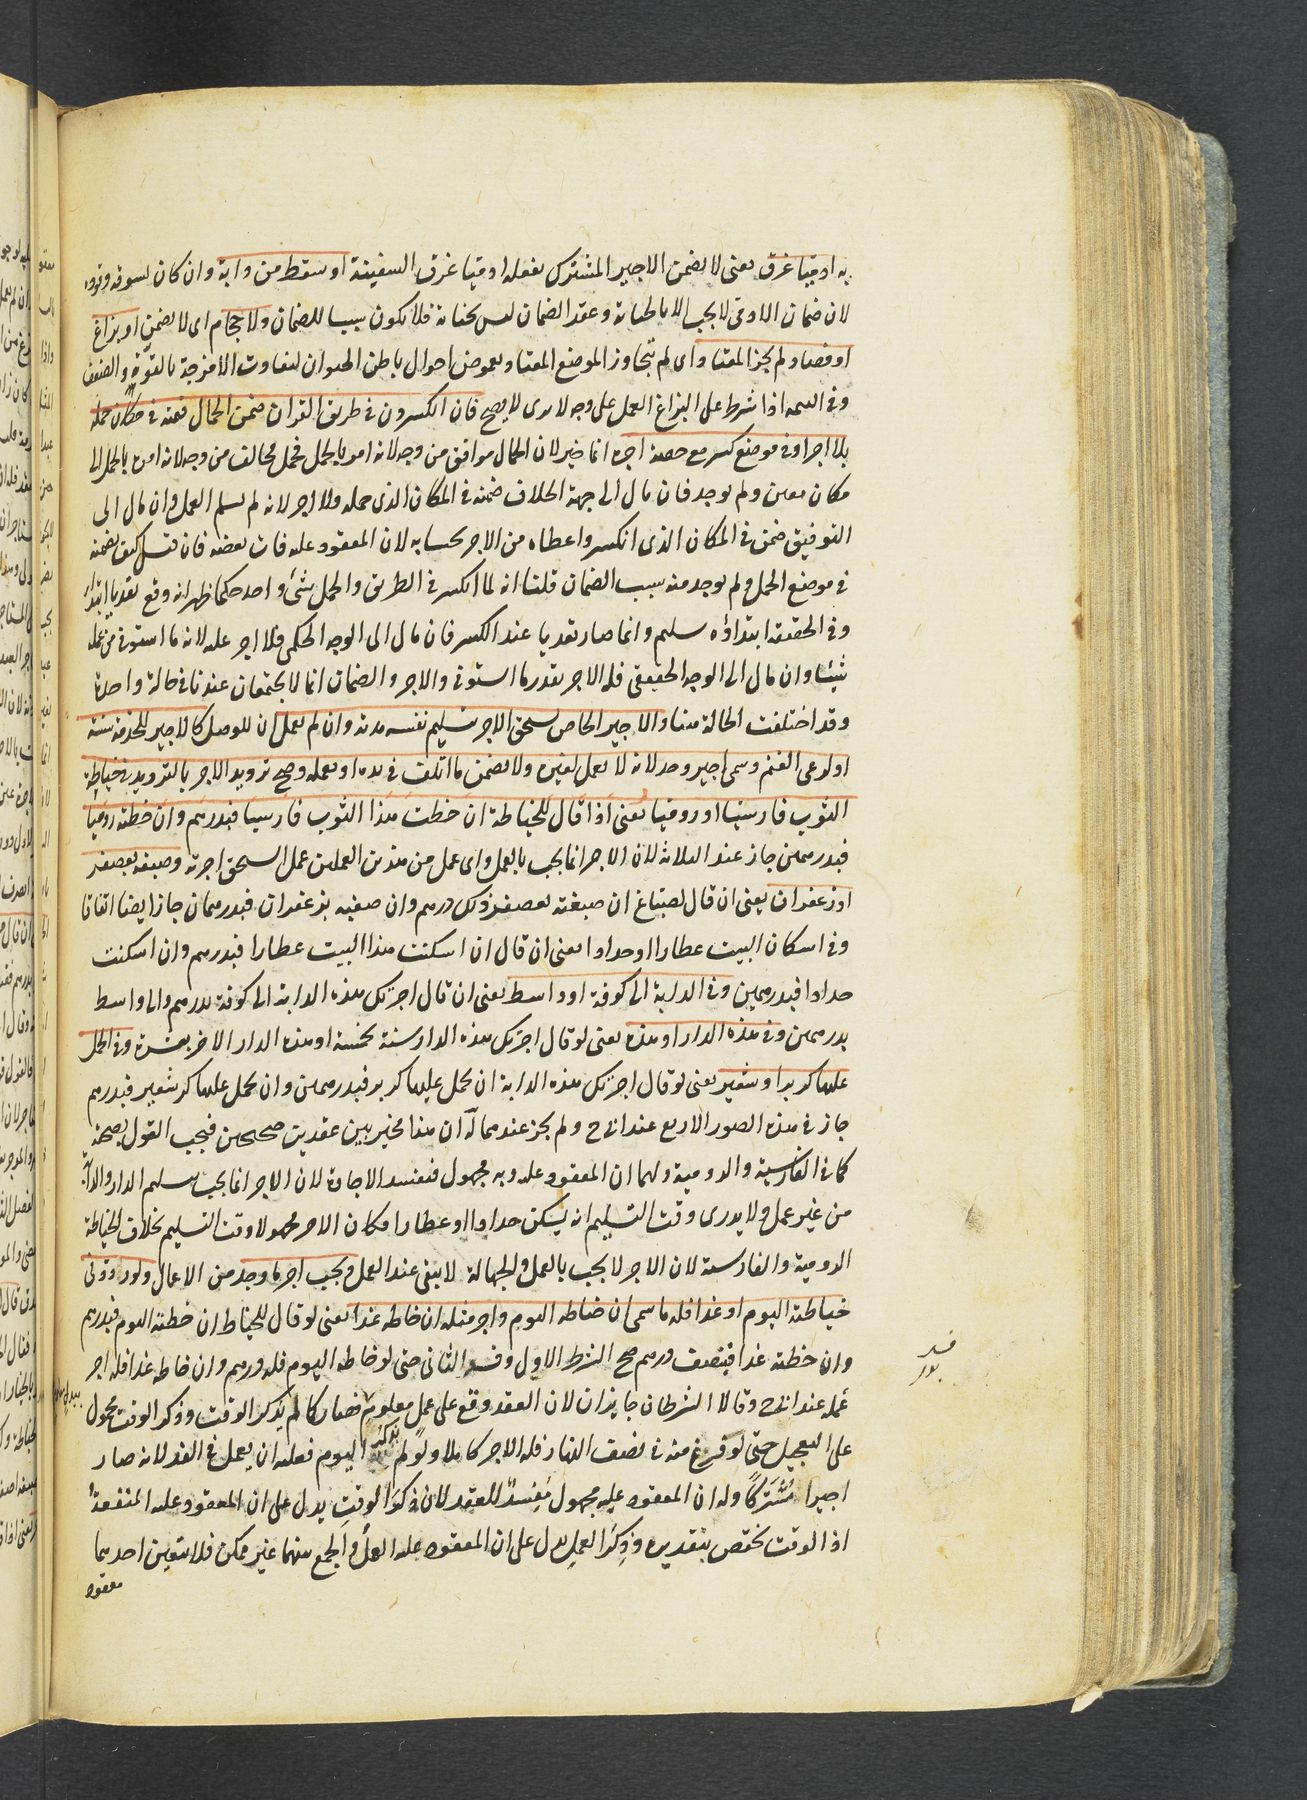 به ادميا غرق يعنى لا يضمن الاجير المشترك بفعله ادميا غرق السفينة او سقط من دابة وان كان بسوقه وقوده
لان ضمان الادمى لا يجب الا بالجناية وعقد الضمان ليس بجناية فلا يكون سببا للضمان ولا حجام اى لا يضمن او بزاغ
او فصاد لم يجز المعتاد اى لم يتجاوز الموضع المعتاد بغموض احوال باطن الحيوان لتفاوت الامزجة بالقوة والضعف
وفى اذا شرط على البزاغ العمل على وجه لا يسرى لا يصح فان انكسر دن فى طريق الفرات ضمن الحمال قيمته فى مكان حمله
بلا اجر او فى موضع كسر مع حصة اجره انما خير لان الحمال موافق من وجه لانه امر بالحمل فحمل مخالف من وجه لانه امره بالحمل الى
مكان معين ولم يوجد فان مال الى جهة الخلاف ضمنه فى المكان الذى حمله ولا اجر لانه لم يسلم العمل وان مال الى
التوفيق ضمن فى المكان الذى انكسر واعطاه من الاجر بحسابه لان المعقود عليه فات بعضه فان قيل كيف يضمنه
فى موضع الحمل ولم يوجد منه سبب الضمان قلنا انه لما انكسر فى الطريق والحمل شئ واحد حكما ظهر انه وقع تعديا ابتداء
وفى الحقيقة ابتداؤه سليم وانما صار تعديا عند الكسر فان مال الى الوجه الحكمى فلا اجر عليه لانه ما استوفى من عمله
شيئا وان مال الى الوجه الحقيقى فله الاجر بقدر ما استوفى والاجر والضمان انما لا يجتمعان عندنا فى حالة واحدة
وقد اختلفت الحالة هنا والاجير الخاص يستحق الاجر بتسليم نفسه مدته وان لم يعمل ان للوصل كالاجير للخدمة سنة
او لرعى الغنم وسمى اجير وحد لانه لا يعمل لغيره ولا يضمن ما اتلف فى يده او بعمله وصح ترديد الاجر بالترديد فى خياطة
الثوب فارسيا او روميا يعنى اذا قال للخياطة ان خطت هذا الثوب فارسيا فبدرهم وان خطته روميا
فبدرهمين جاز عند الثلاثة لان الاجر انما يجب بالعمل واى عمل من هذين العملين عمل استحق اجرته وصبغه بعصفر
او زعفران يعنى ان قال لصباغ ان صبغته بعصفر فلك درهم وان صبغته بزعفران فبدرهمان جاز ايضا اتفاقا
وفى اسكان البيت عطارا او حدادا يعنى ان قال ان اسكنت هذا البيت عطارا فبدرهم وان اسكنت
حدادا فبدرهمين وفى الدابة الى كوفة او واسط يعنى ان قال اجرتك هذه الدابة الى كوفة بدرهم والى واسط
بدرهمين وفى هذه الدار او هذه يعنى لو قال اجرتك هذه الدار سنة بخمسة او هذه الدار الاخر بعشرة وفى الحمل
عليها كر بر او شعير يعنى لو قال اجرتك هذه الدابة ان تحمل عليها كر بر فبدرهمين وان تحمل عليها كر شعير فبدرهم
جاز فى هذه الصور الاربع عند ابى ح ولم يجز عندهما له ان هذا مخير بين عقدين صحيحين فيجب القول بصحته
كما فى الفارسية والرومية ولهما ان المعقود عليه وبه مجهول فتفسد الاجارة لان الاجر انما يجب بتسليم الدار والدابة
من غير عمل ولا يدرى وقت التسليم انه يسكن حدادا او عطارا فكان الاجر مجهولا وقت التسليم بخلاف الخياطة
الرومية والفارسية لان الاجر لا يجب بالعمل والجهالة لا تبقى عند العمل ويجب اجر ما وجد من الاعمال ولو ردد فى
خياطته اليوم او غدا فله ما سمى ان خاطه اليوم واجر مثله ان خاطه غدا يعنى لو قال للخياط ان خطته اليوم فبدرهم
وان خطته غدا فبنصف درهم صح الشرط الاول وفسد الثانى حتى لو خاطه اليوم فله درهم وان خاطه غدا فله اجر
عمله عند ابى ح وقالا الشرطان جايزان لان العقد وقع على عمل معلوم فصار كما لم يذكر الوقت وذكر الوقت محمول
على التعجيل حتى لو فرغ منه فى نصف النهار فله الاجر كاملا ولو لم يذكر اليوم فعليه ان يعمل فى الغد لانه صار
اجيرا مشتركا وله ان المعقود عليه مجهول مفسد للعقد لان ذكر الوقت يدل على ان المعقود عليه المنفعة
اذا الوقت يختص بتقديره وذكر العمل يدل على ان المعقود عليه العمل والجمع بينهما غير ممكن فلا يتعين احديهما
معقود